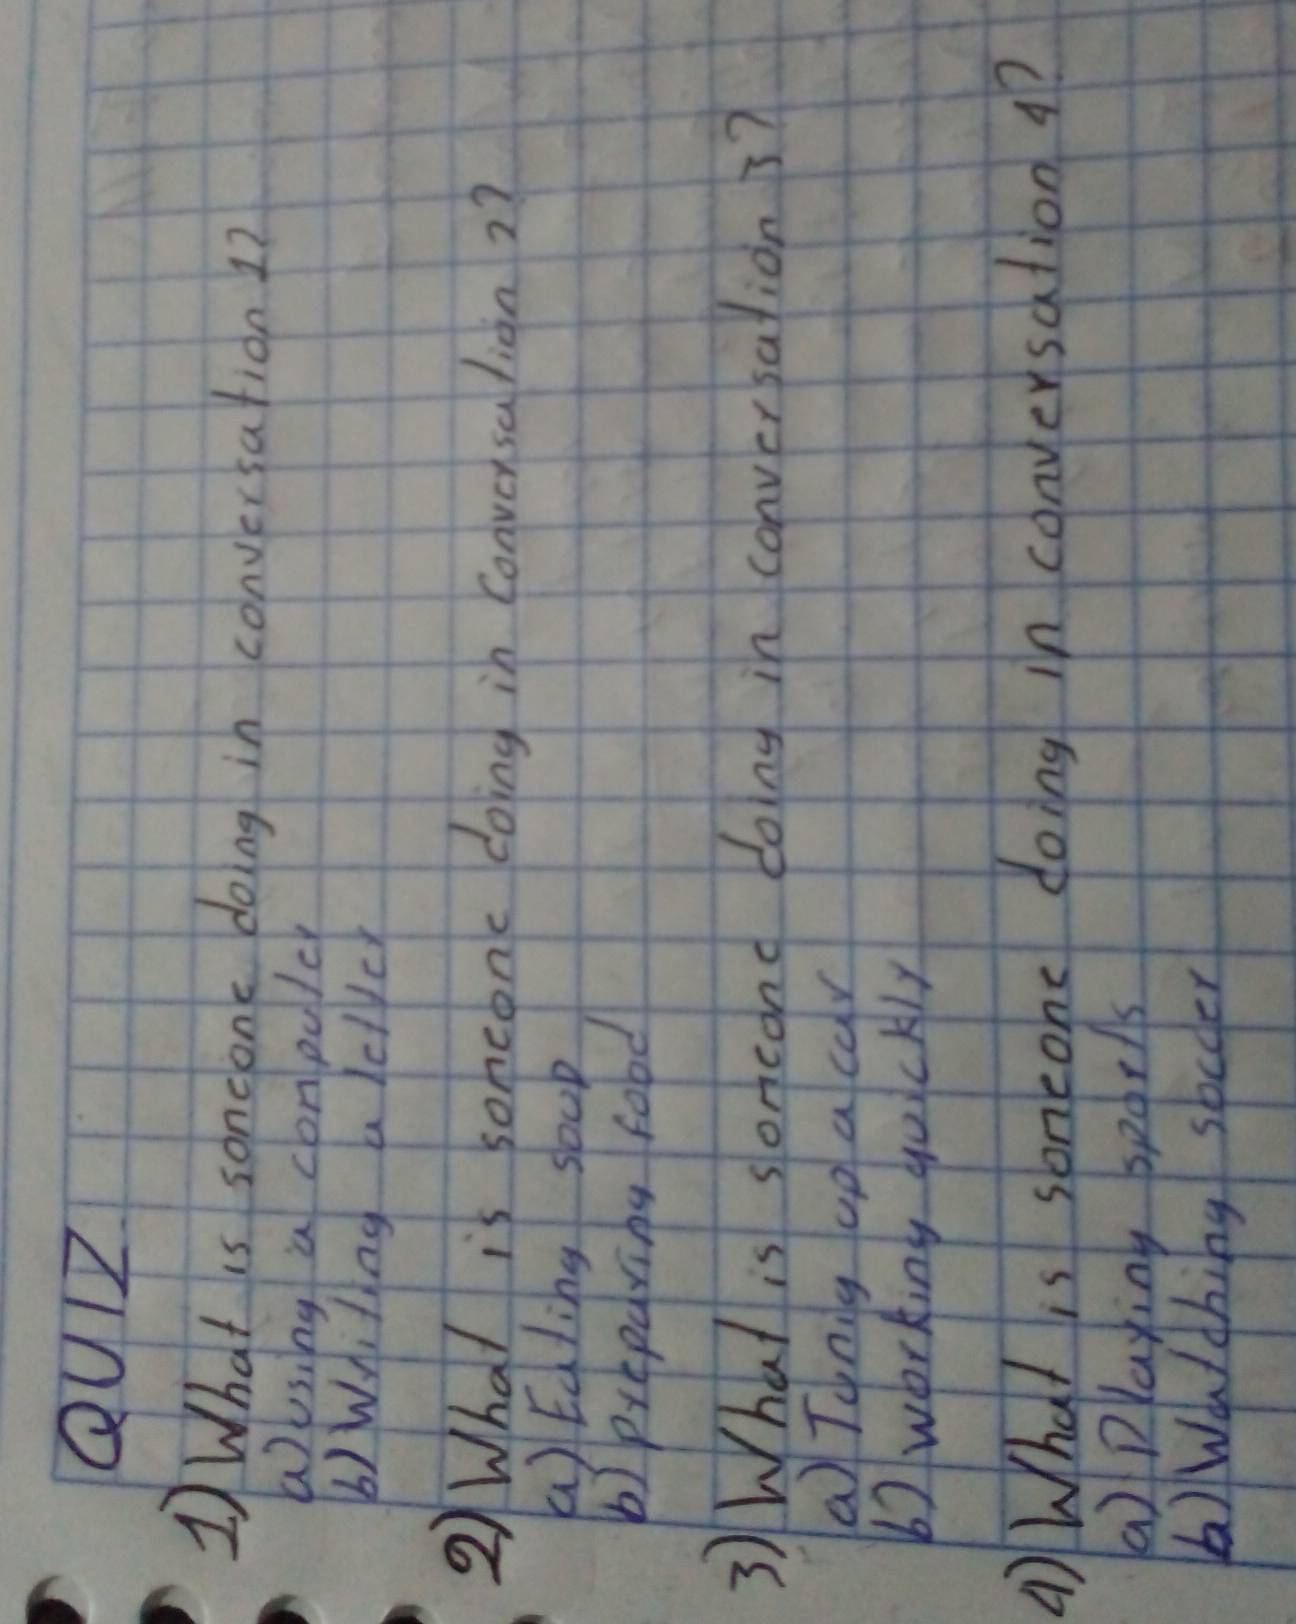 QUIZ
1) What is someone doing in conversation 1?
a) using a computer
b) Writing a letter
2) What is someone doing in conversation 2?
a) Eating soup
b) preparing food
3) What is someone doing in conversation 3?
a) Tunig up a car
b) working quickly
4) What is someone doing in conversation 4?
a) Playing sports
b) Watching soccer